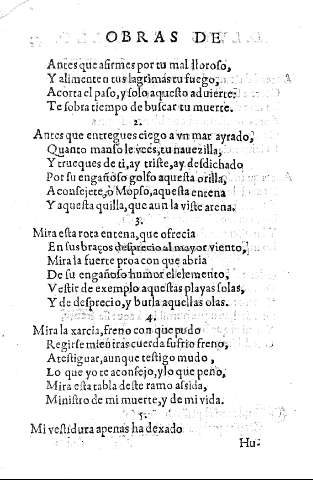 OBRAS DE
Antes que afirmes por tu mal lloroso,
Y alimente en tus lagrimas tu fuego,
Acorta el paso, y solo aquesto aduierte:
Te sobra tiempo de buscar tu muerte.
2.
Antes que entregues ciego a vn mar ayrado,
Quanto manso le vees, tu nauezilla,
Y trueques de ti, ay triste, ay desdichado
Por su engañoso golfo aquesta orilla,
Aconsejete, ò Mopso, aquesta entena
Y aquesta quilla, que aun la viste arena.
3.
Mira esta rota entena, que ofrecia
En sus braços desprecio al mayor viento,
Mira la fuerte proa con que abria
De su engañoso humor el elemento,
Vestir de exemplo aquestas playas solas,
Y de desprecio, y burla aquellas olas.
4.
Mira la xarcia, freno con que pudo
Regirse mientras cuerda sufrio freno,
Atestiguar, aunque testigo mudo,
Lo que yo te aconsejo, y lo que peno,
Mira esta tabla deste ramo assida,
Ministro de mi muerte, y de mi vida.
5.
Mi vestidura apenas ha dexado
Hu-